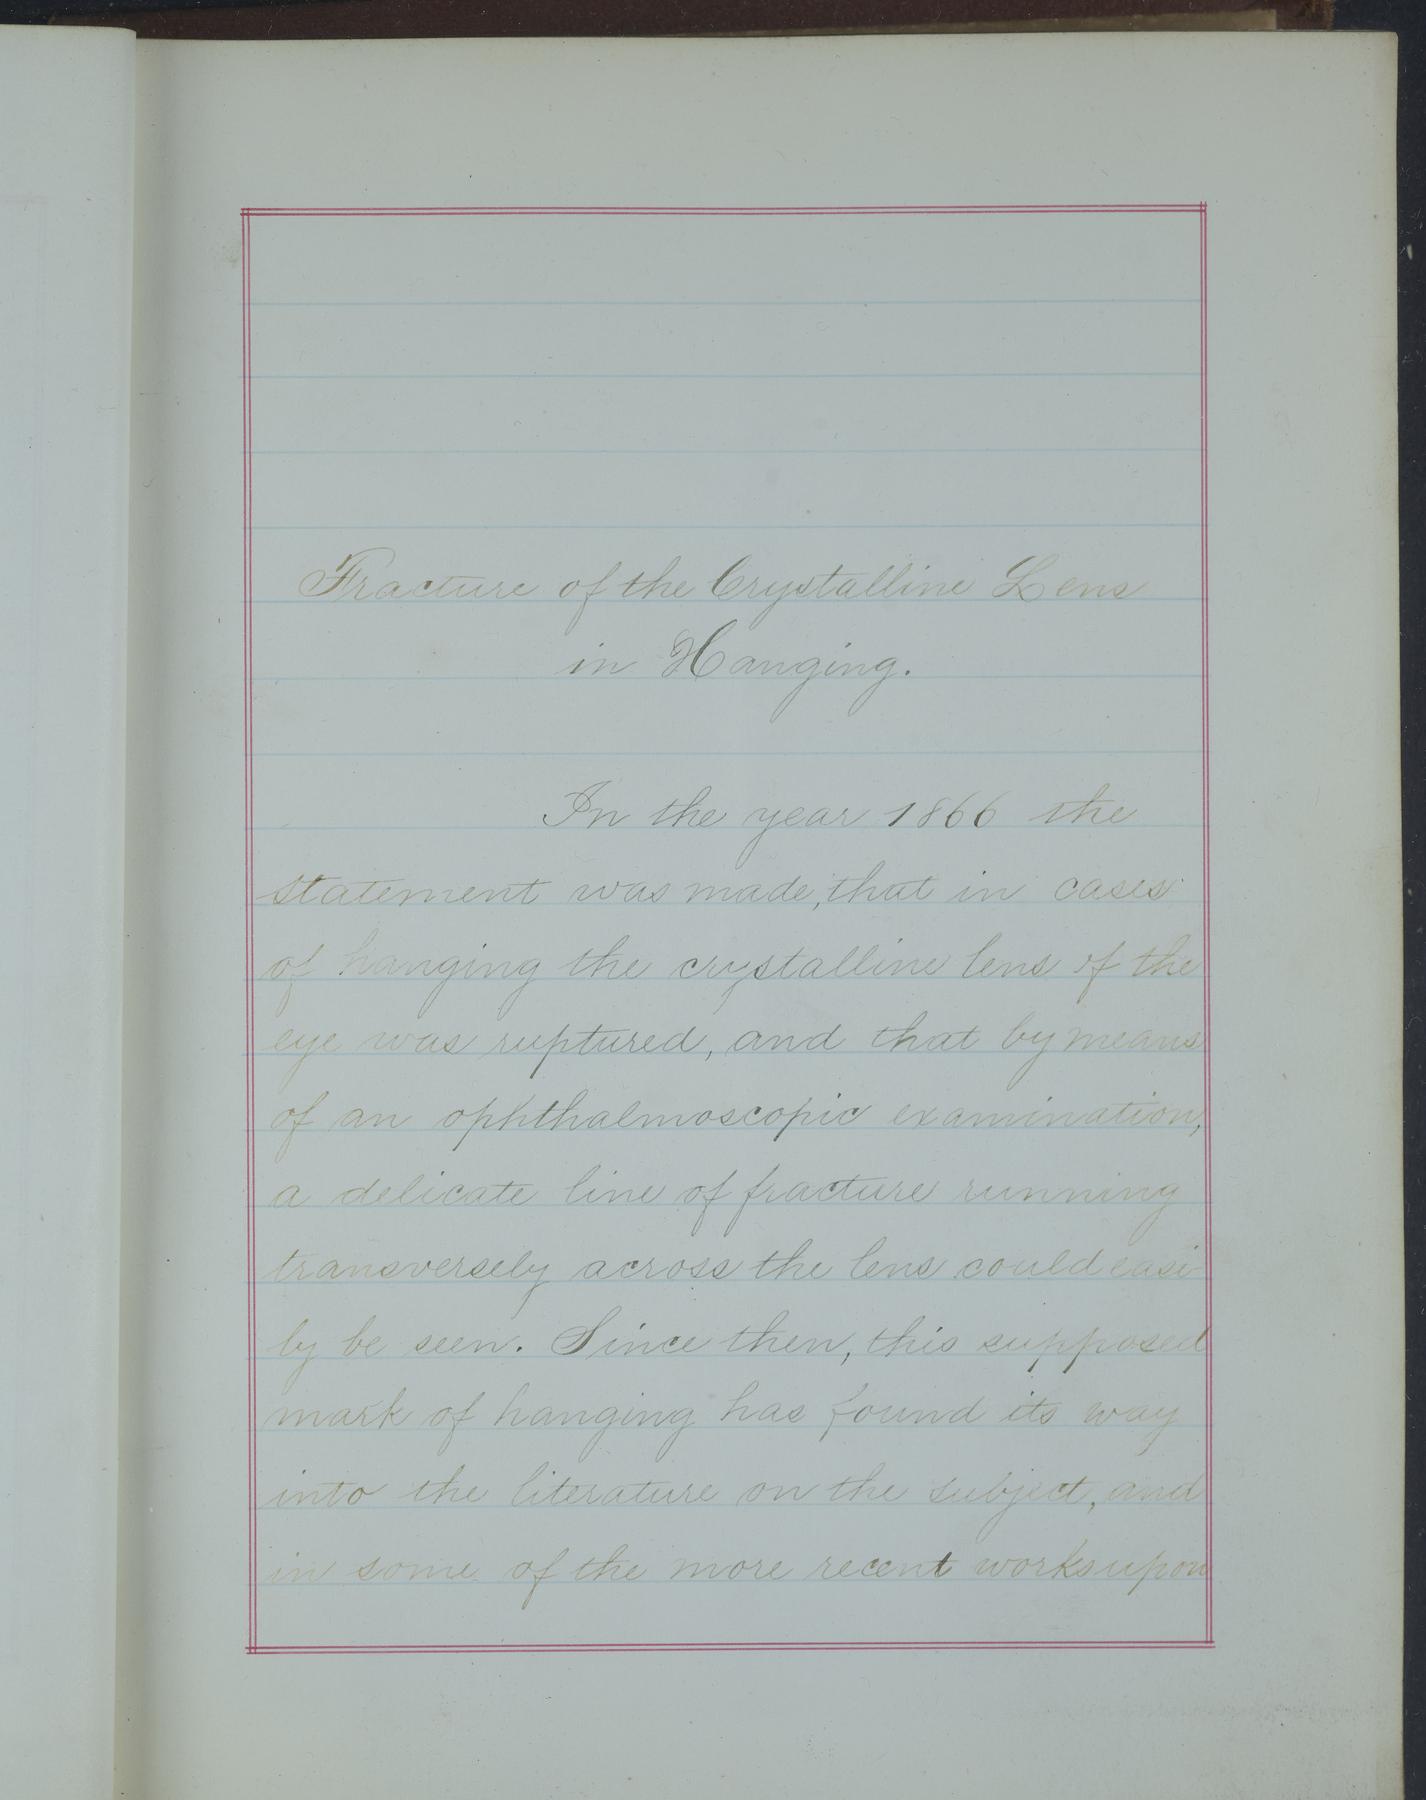 Fracture of the Crystalline Lens
in Hanging.
In the year 1866 the
statement was made, that in cases
of hanging the crystalline lens of the
eye was ruptured, and that by means
of an ophthalmoscopic examination,
a delicate line of fracture running
transversely across the lens could easi
ly be seen. Since then, this supposed
mark of hanging has found its way
into the literature on the subject, and
in some of the more recent works upon